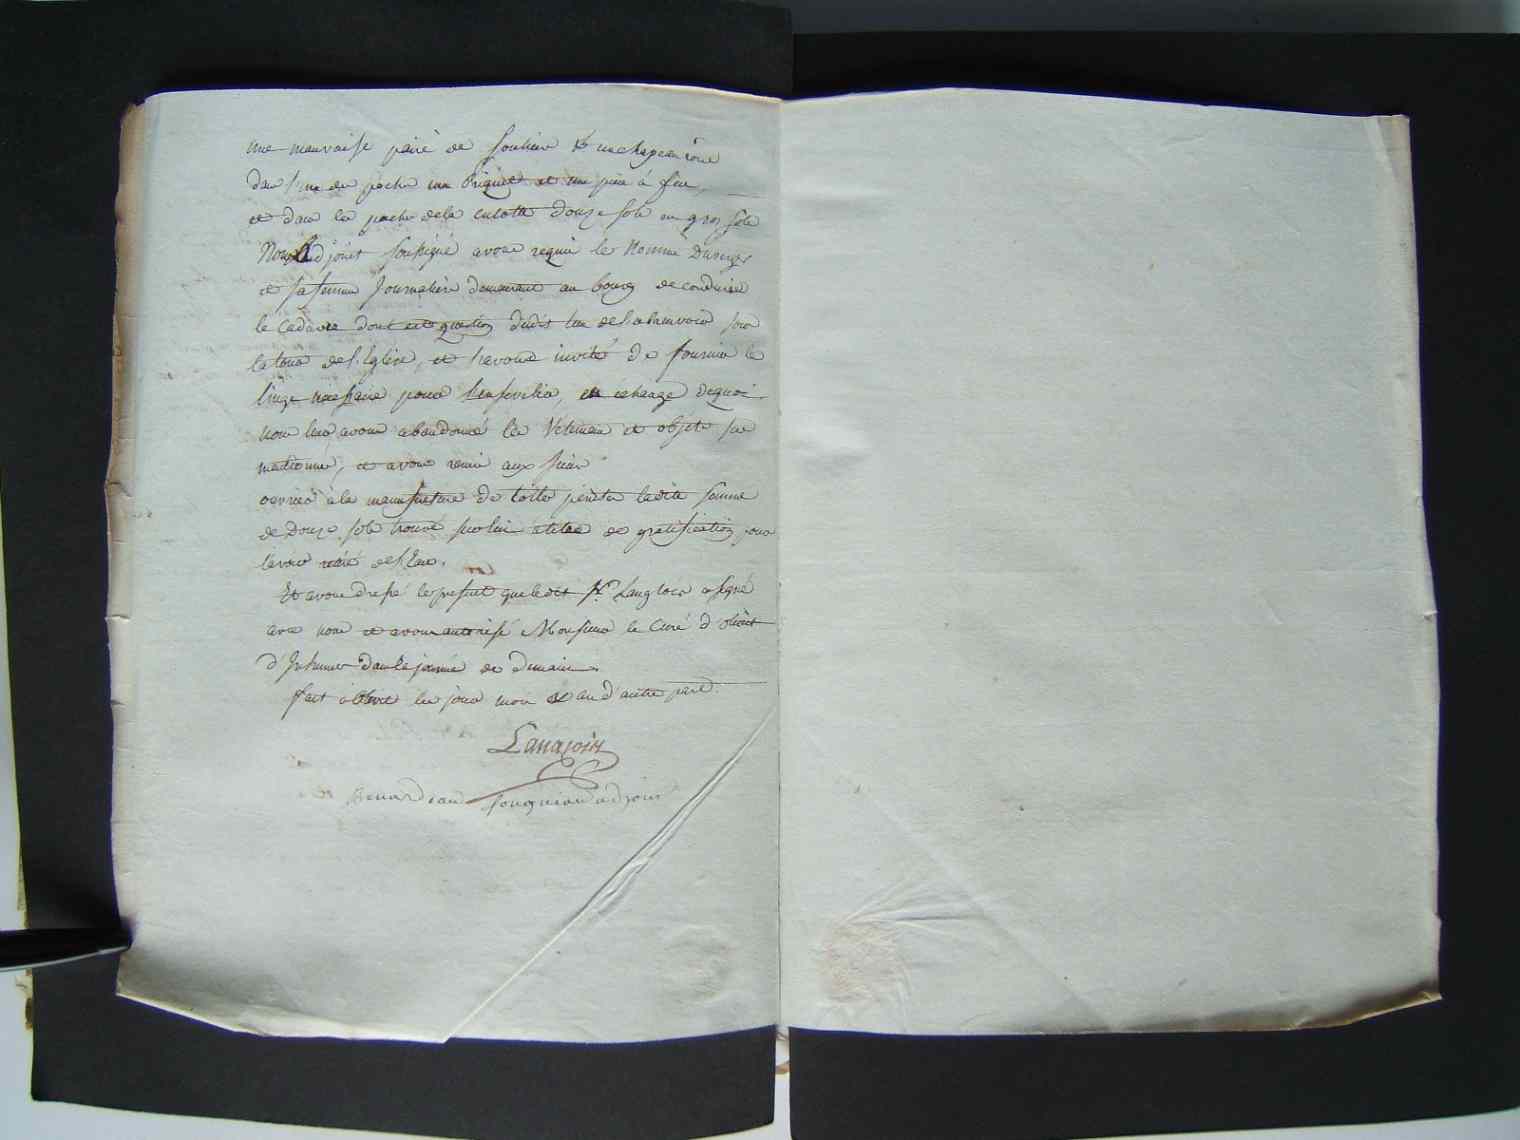 une mauvaise paire de souliers & un chapeau rond
dans l'une des poches un Briquet et une pierre à feu,
et dans la poche de la culotte douze sols en gros sols
Nous adjoint soussigné avons requis le Nommé
et sa femme Journaliers demeurant au bourg de conduire
le cadavre dont est question dudit lieu de l'abreuvoir sous
la tour de l'Eglise, et l'avons invité de fournir le
linge necessaire pour l'ensevelir, en echange de quoi
nous lui avons abandonné les Vetemens et objets sus
mentionnés, et avons remis aux sieurs
ouvriers à la manufacture de toiles peintes ladite somme
de Douze sols trouvé sur lui à titre de gratification pour
l'avoir retiré de l'Eau.
Et avons dressé le présent que ledit Sr. Langlois a signé
avec nous et avons autorisé Monsieur le Curé d'olivet
d'Inhumer dans la journée de demain
fait à olivet les jour mois & an d'autre part.
adjoint